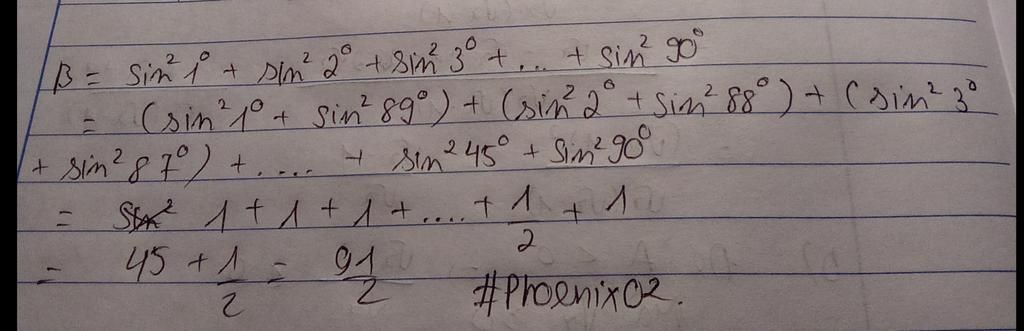 B = sin² 1⁰ + sin² 2⁰ + sin² 3⁰ + ... + sin² 90⁰
= (sin² 1⁰ + sin² 89⁰) + (sin² 2⁰ + sin² 88⁰) + (sin² 3⁰
+ sin² 87⁰) + .... + sin² 45⁰ + sin² 90⁰
= 1 + 1 + 1 + .... + 1/2 + 1
= 45 + 1/2 = 91/2 #Phoenix02.